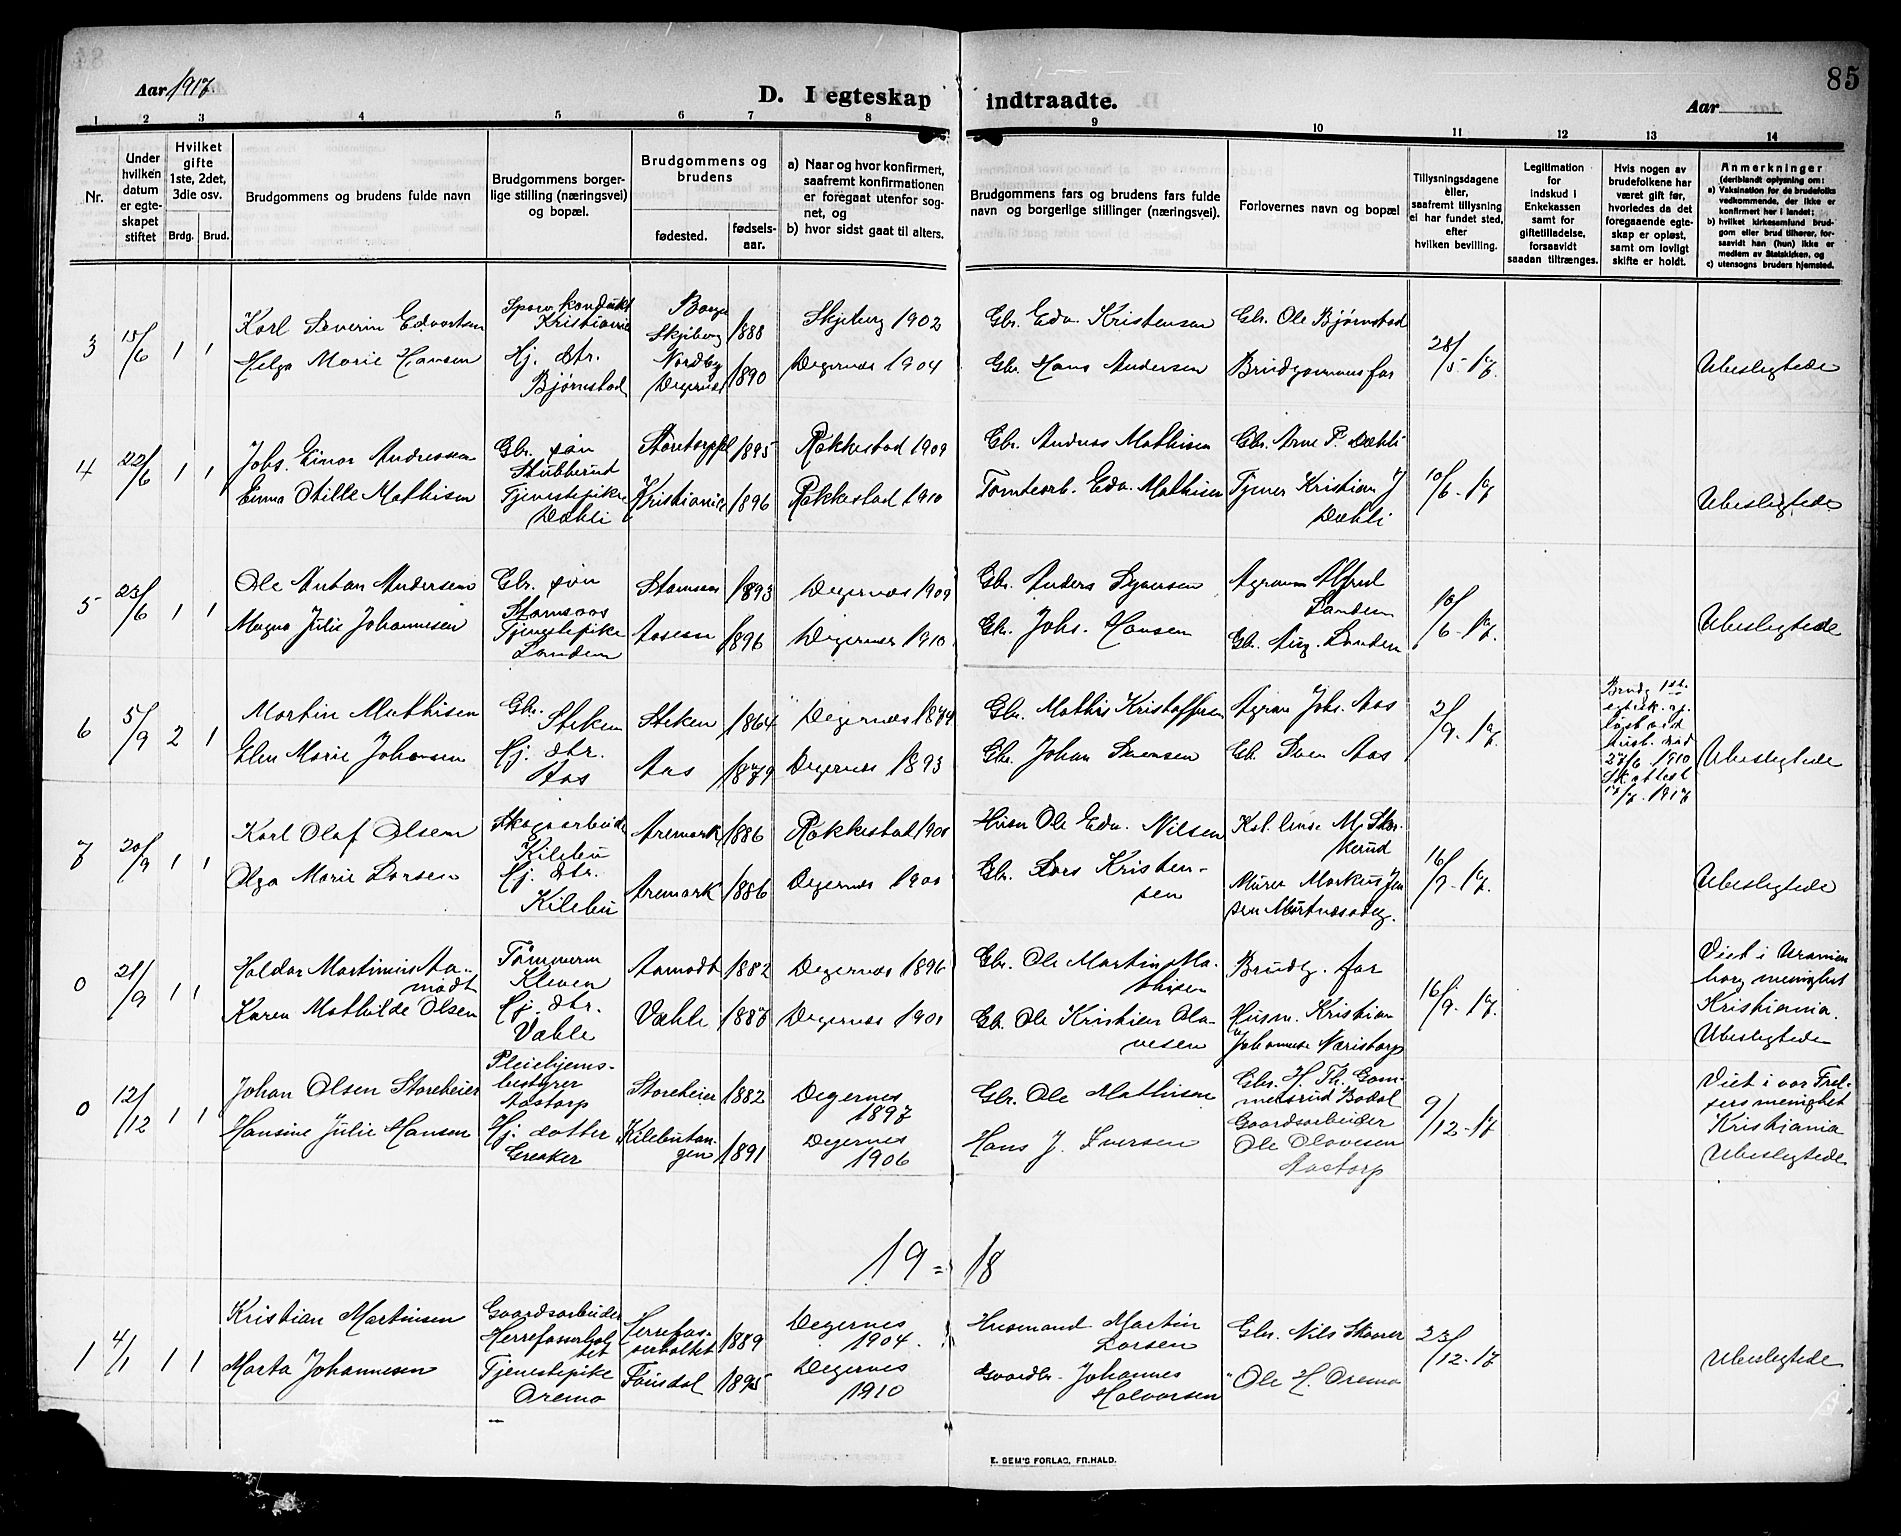 85
Aar 1917
D. I egteskap indtraadte.
Aar
1 2 3 4 5 6 7 8 9 10 11 12 13 14
Nr.
Under hvilken datum er egteskapet stiftet
Hvilket gifte 1ste, 2det, 3die osv.
Brdg. Brud.
Brudgommens og brudens fulde navn
Brudgommens borgerlige stilling (næringsvei) og bopæl.
Brudgommens og brudens
fødested. fødselsaar.
a) Naar og hvor konfirmert, saafremt konfirmationen er foregaat utenfor sognet, og
b) hvor sidst gaat til alters.
Brudgommens fars og brudens fars fulde navn og borgerlige stillinger (næringsvei).
Forlovernes navn og bopæl
Tillysningsdagene eller, saafremt tillysning ei har fundet sted, efter hvilken bevilling.
Legitimation for indskud i Enkekassen samt for giftetilladelse, forsaavidt saadan tiltrænges.
Hvis nogen av brudefolkene har været gift før, hvorledes da det foregaaende egteskap er opløst, samt om lovligt skifte er holdt.
Anmerkninger (deriblandt oplysning om:
a) Vaksination for de brudefolks vedkommende, der ikke er konfirmert her i landet;
b) hvilket kirkesamfund brudgom eller brud tilhører, forsaavidt han (hun) ikke er medlem av Statskirken, og
c) utensogns bruders hjemsted.
3 15/6 1 1 Karl Severin Edvartsen Sporv. kondukt Kristiania Borge Skjeberg 1888 Skjeberg 1902 Gbr. Edv. Kristensen Gbr. Ole Bjørnstad 28/5-17
Helga Marie Hansen Hj. dtr. Bjørnstad Nordby Degernes 1890 Degernes 1904 Gbr. Hans Andersen Brudgommens far Ubeslegtede
4 22/6 1 1 Johs. Einar Andreassen Gbr. søn Stubberud 1895 Rakkestad 1909 Gbr. Andreas Mathisen Gbr. Arne P. Dæhli 10/6-17
Emma Otille Mathisen Tjenestepike Dæhli Kristiania 1896 Rakkestad 1910 Tomtearb. Edv. Mathisen Tjener Kristian J Dæhli Ubeslegtede
5 23/6 1 1 Ole Anton Andersen Gbr. søn Stomsaas 1893 Degernes 1909 Gbr. Anders Syversen Agronom Alfred Landem 10/6-17
Magna Julie Johannesen Tjenestepike Landem Aaseon 1896 Degernes 1910 Gbr. Johs. Hansen Gbr. Aug. Landem Ubeslegtede
6 5/9 2 1 Martin Mathisen Gbr. Steken Steken 1864 Degernes 1879 Gbr. Mathis Kristoffersen Agron Johs. Aas 2/9-17
Elen Marie Johansen Hj. dtr. Aas Aas 1879 Degernes 1893 Gbr. Johan Svensen Gb. Sven Aas
Brudg 1ste egtesk. opløst ved hust. død 27/6 1910 Sk. attest 1917
Ubeslegtede
7 20/9 1 1 Karl Olaf Olsen Skogsarbeider Kilebu Aremark 1886 Rakkestad 1901 Husm Ole Edv. Nilsen M. Skarkerud 16/9-17
Olga Marie Larsen Hj. dtr. Kilebu Aremark 1886 Degernes 1901 Gbr. Lars Kristensen Murer Markus Jensen Ubeslegtede
0 21/9 1 1 Haldor Martinius Aamodt Tømmerm Kleven Aamodt 1882 Degernes 1896 Gbr. Ole Martin Mathisen Brudg. far 16/9-17
Karen Mathilde Olsen Hj. dtr. Væhle Væhle 1887 Degernes 1901 Gb. Ole Kristian Olavesen Husm. Kristian Johannese Næristorp
Viet i Uranienborg menighet Kristiania. Ubeslegtede
0 12/12 1 1 Johan Olsen Storeheier Pleiehjemsbestyrer Aastorp Storeheier 1882 Degernes 1897 Gbr. Ole Mathisen Gbr. H. Th. Gammelsrud Bodal 9/12-17
Hansine Julie Hansen Hj. datter Greaker Kilebutangen 1891 Degernes 1906 Hans J. Iversen Gaardsarbeider Ole Olavesen Aastorp
Viet i vor Frelsers menighet Kristiania Ubeslegtede
19 = 18
1 4/1 1 1 Kristian Martinsen Gaardsarbeider Herrefosserholtet Herrefosserholtet 1889 Degernes 1904. Husmand Martin Larsen Gbr. Nils Skaarer 23/12-17
Marta Johannesen Tjenestepike Oremo Fonsdal 1895 Degernes 1910 Gaardbr. Johannes Halvorsen " Ole H. Oremo Ubeslegtede
E. SEM'S FORLAG, FR.HALD.